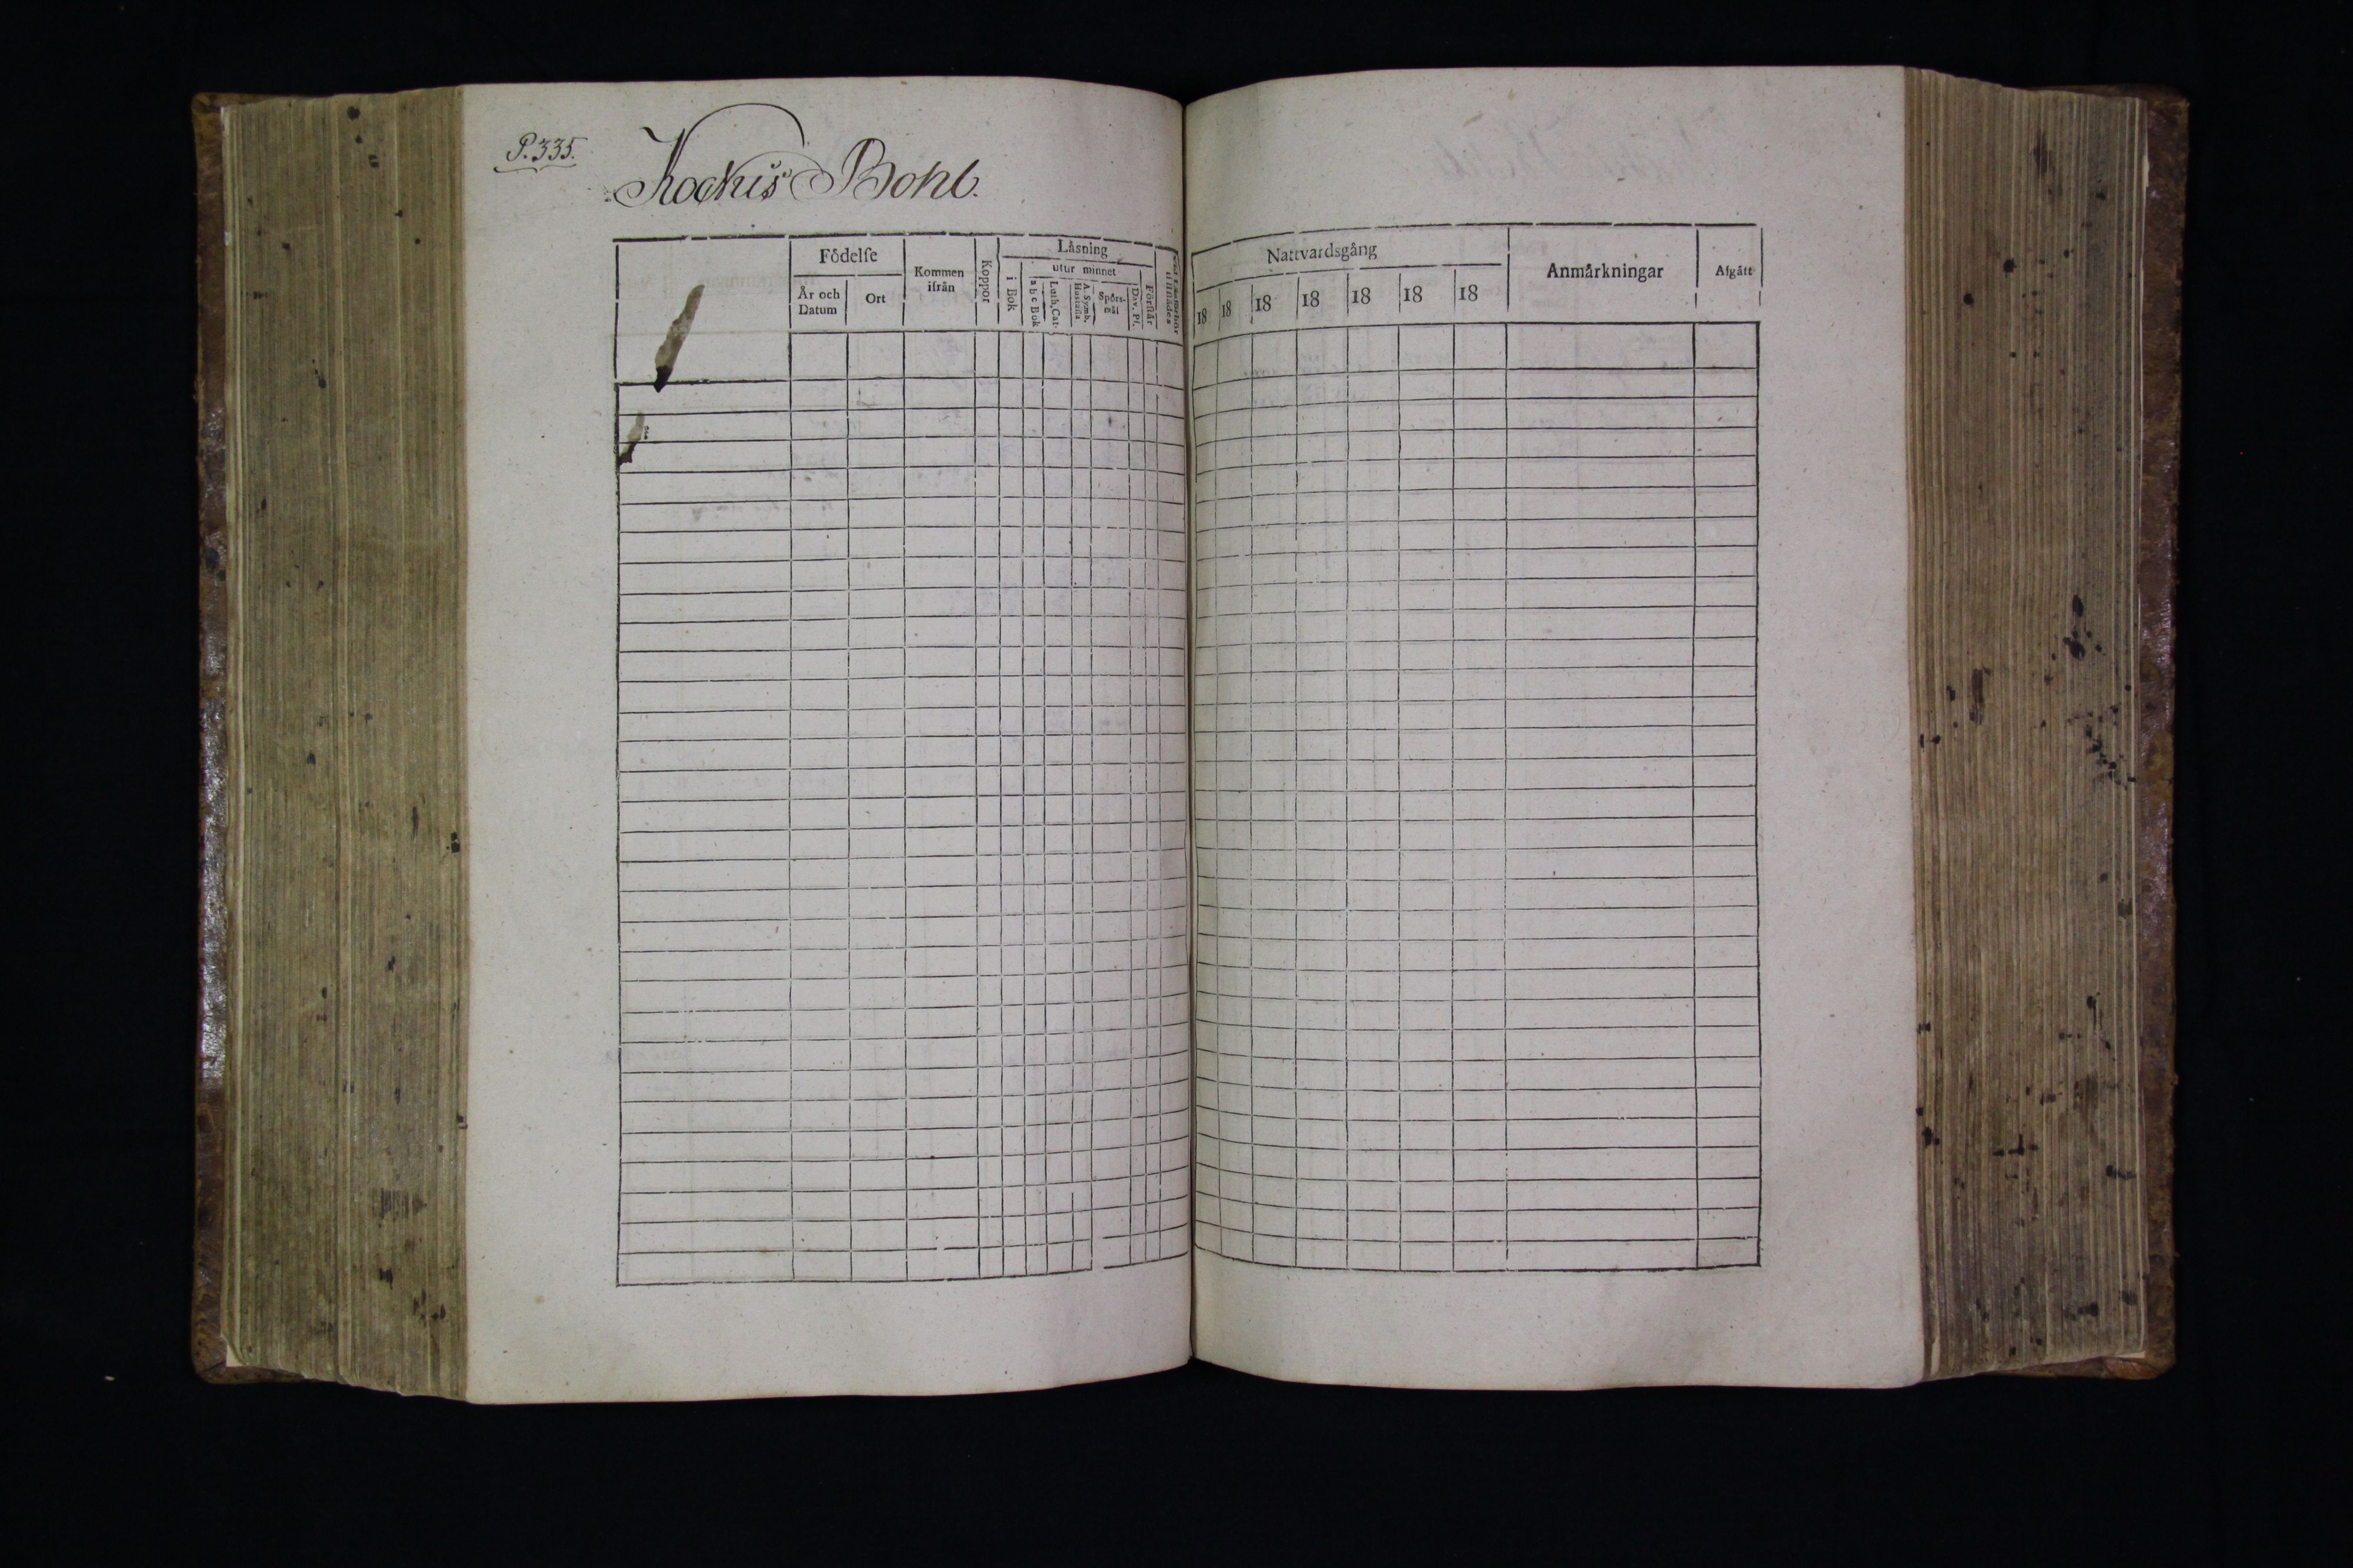 P. 335.
Kockis Bohl.
Födelse
Kommen
ifrån
Koppor
Läsning
utur minnet
År och
Datum
Ort
i Bok
a b c Bok
Luth. Cat.
A. Symb.
Hustafla
Spörs-
mål
Dav. Ps.
Förstår
Nattvardsgång
18 18 18 18 18 18 18
Anmärkningar
Afgått